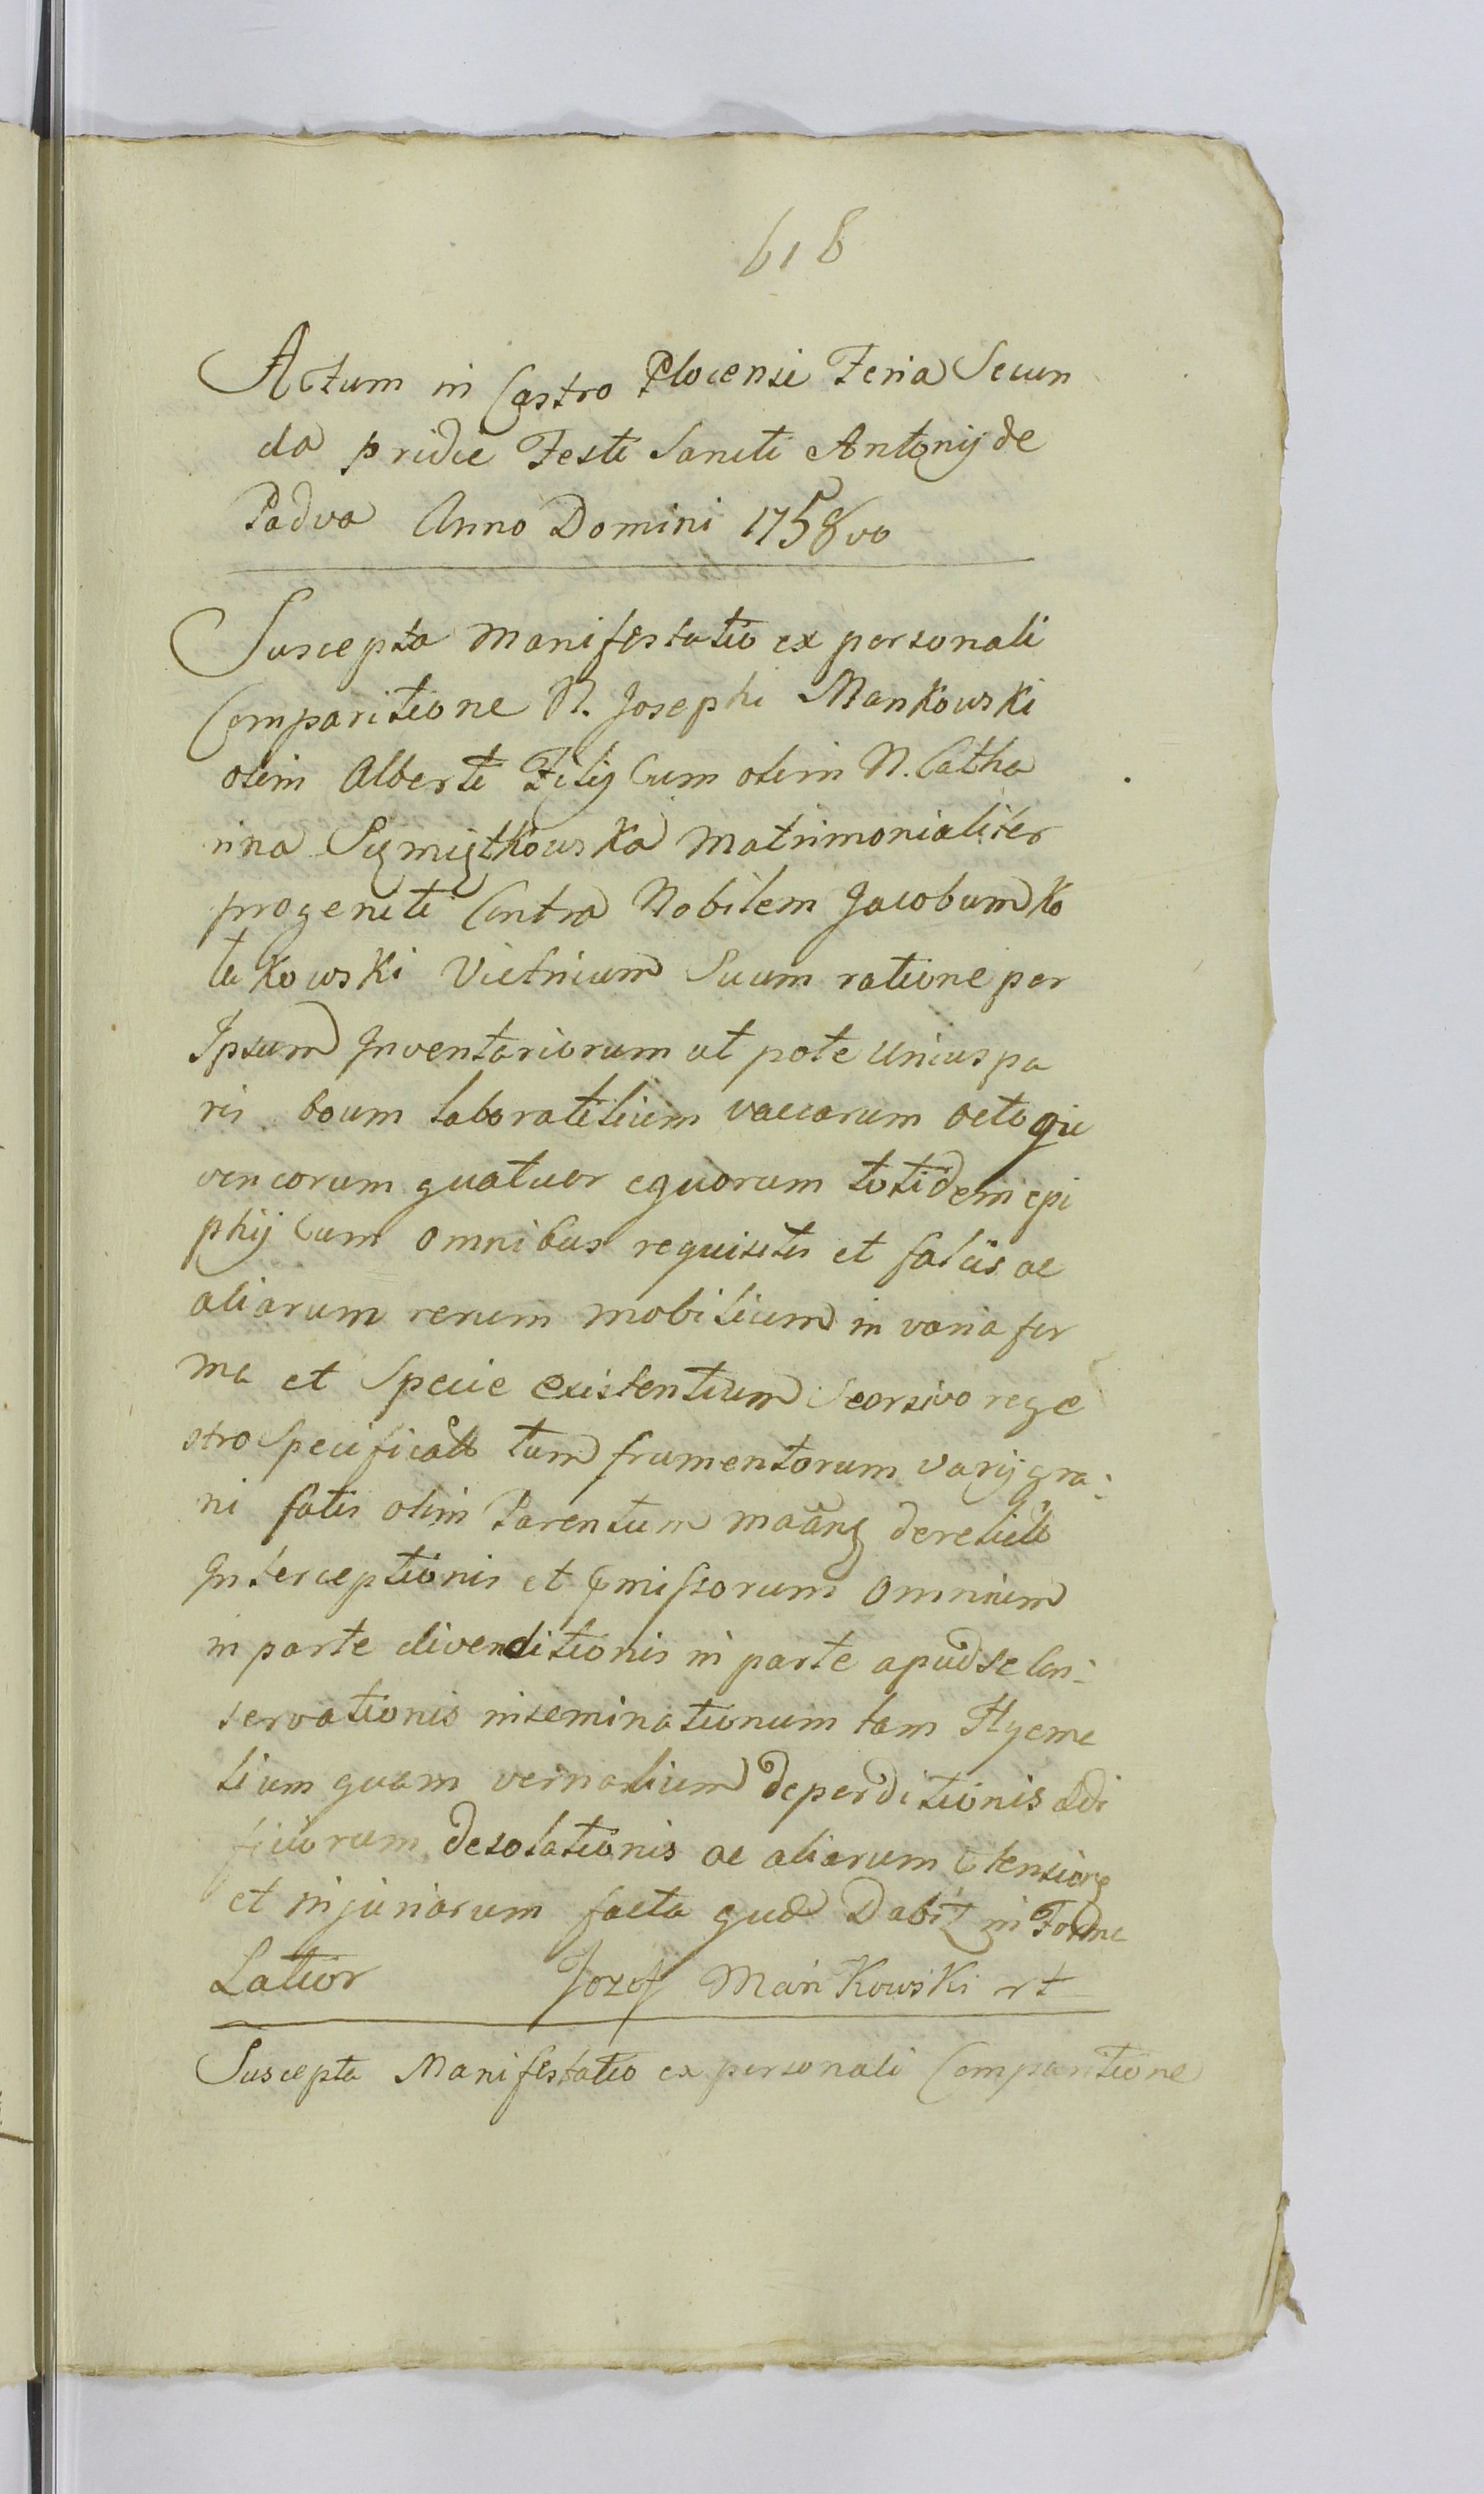 618
Actum in Castro Plocensi Feria Secun
da pridie Festi Sancti Antonij de
Padva Anno Domini 1758vo
Suscepta Manifestatio ex personali
Comparitione N. Josephi Mankowski
olim Alberti Filij Cum olim N. Catha
rina Matrimonialiter
progeniti Contra Nobilem Jacobum Ko
takowski Victricum Suum ratione per
Ipsum Inventariorum ut pote unius pa
ris boum laboratilium vaccarum octo giu
vencorum quatuor equorum totidem epi
phij Cum omnibus requisitis et falcis ac
aliarum rerum mobilium in varia for
ma et Specie existentium Seorsivo rege
stro Specificatt tum frumentorum varij gra:
ni fatis olim Parentum derelictt
Interceptionis et praemissorum omnium
in parte divenditionis in parte apud se Con:
servationis inseminationum tam Hyema
lium quam vernalium deperditionis aedi
ficiorum desolationis ac aliarum
et injuriarum facta quae Dabit in Forma
Latior Jozef Mańkowski rt
Suscepta Manifestatio ex personali Comparitione